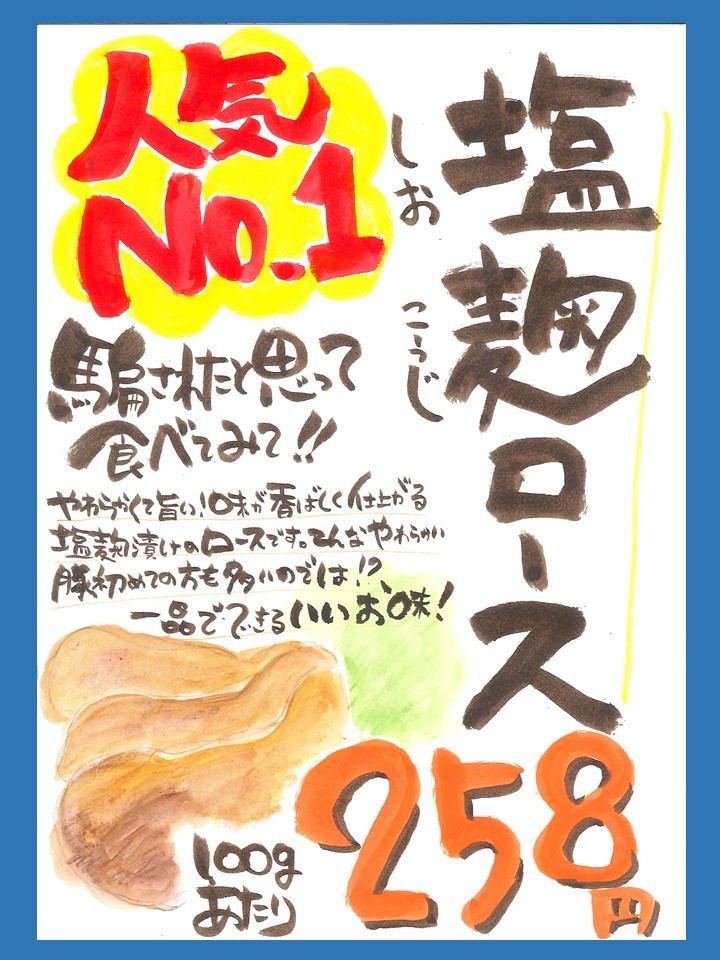 塩麹ロース
しお
こうじ
人気
No.1
騙されたと思って
食べてみて!!
やわらかくて旨い!味が香ばしく仕上がる
塩麹漬けのロースです。こんなやわらかい
豚初めての方も多いのでは!?
一品でできるいいお味!
100g
あたり
258円